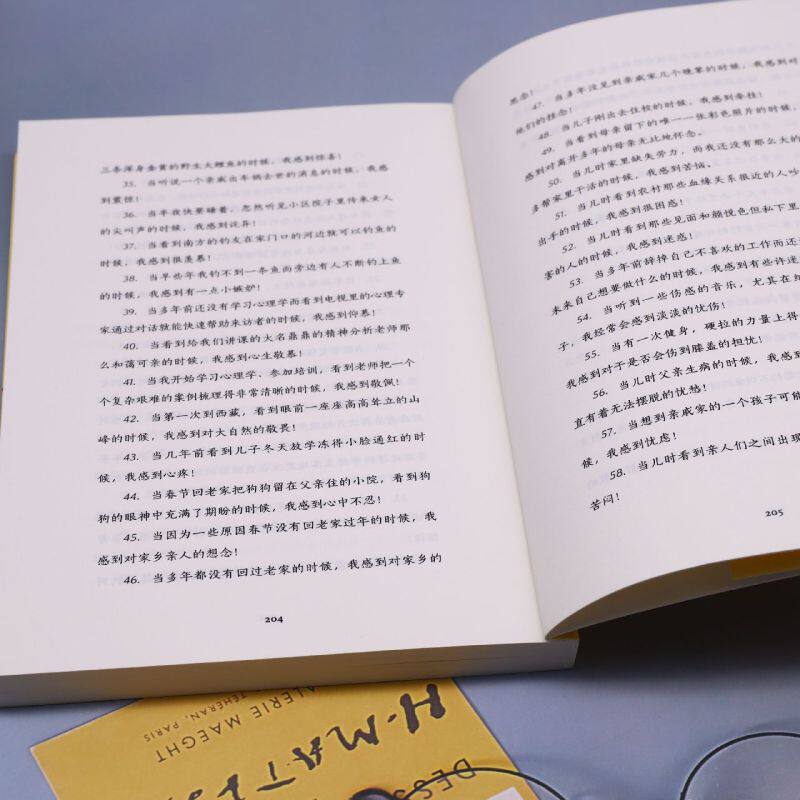 三条浑身金黄的野生大鲤鱼的时候，我感到惊喜！
35. 当听说一个亲戚出车祸去世的消息的时候，我感
到震惊！
36. 当年我快要睡着，忽然听见小区院子里传来女人
的尖叫声的时候，我感到诧异！
37. 当看到南方的钓友在家门口的河边就可以钓鱼的
时候，我感到很羡慕！
38. 当早些年我钓不到一条鱼而旁边有人不断钓上鱼
的时候，我感到有一点小嫉妒！
39. 当多年前还没有学习心理学而看到电视里的心理专
家通过对话就能快速帮助来访者的时候，我感到仰慕！
40. 当看到给我们讲课的大名鼎鼎的精神分析老师那
么和蔼可亲的时候，我感到心生敬慕！
41. 当我开始学习心理学、参加培训，看到老师把一个
个复杂艰难的案例梳理得非常清晰的时候，我感到敬佩！
42. 当第一次到西藏，看到眼前一座座高高耸立的山
峰的时候，我感到对大自然的敬畏！
43. 当几年前看到儿子冬天放学冻得小脸通红的时
候，我感到心疼！
44. 当春节回老家把狗狗留在父亲住的小院，看到狗
狗的眼神中充满了期盼的时候，我感到心中不忍！
45. 当因为一些原因春节没有回老家过年的时候，我
感到对家乡亲人的想念！
46. 当多年都没有回过老家的时候，我感到对家乡的
204
思念！
47. 当多年没见到亲戚家几个晚辈的时候，我感到对
他们的挂念！
48. 当儿子刚出去住校的时候，我感到牵挂！
49. 当看到母亲留下的唯一一张彩色照片的时候，
感到对离开多年的母亲无比地怀念。
50. 当儿时家里缺失劳力，而我还没有那么大的
多帮家里干活的时候，我感到苦恼。
51. 当儿时看到农村那些血缘关系很近的人吵
出手的时候，我感到很困惑！
52. 当儿时看到那些见面和颜悦色但私下里
害的人的时候，我感到迷惑！
53. 当多年前辞掉自己不喜欢的工作而还
未来自己想要做什么的时候，我感到有些许迷
54. 当听到一些伤感的音乐，尤其在
子，我经常会感到淡淡的忧伤！
55. 当有一次健身，硬拉的力量上得
我感到对于是否会伤到膝盖的担忧！
56. 当儿时父亲生病的时候，我感到
直有着无法摆脱的忧愁！
57. 当想到亲戚家的一个孩子可能
候，我感到忧虑！
58. 当儿时看到亲人们之间出现
苦闷！
205
H.MAT
DESS
ALERIE MAEGHT
TEHERAN, PARIS